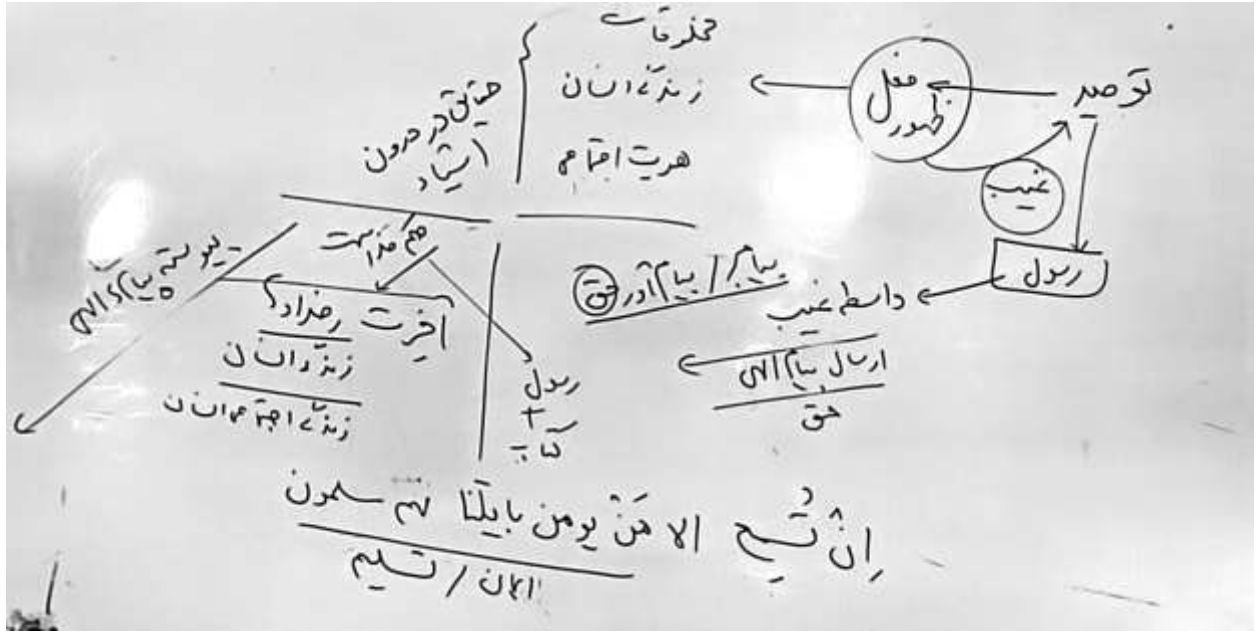 توحید
فعل
ظهور
غیب
رسول
مخلوقات
زندگی انسان
هویت اجتماعی
حقایق در درون
اشیاء
واسطه غیب
ارسال پیام الهی
حق
پیامبر / پیام آور حق
رسول
+
کتاب
آخرت
زندگی انسان
زندگی اجتماعی انسان
پیوسته پیام الهی
اِنْ تُسمِع الا مَنْ یومن بایتنا فهم مسلمون
ایمان / تسلیم